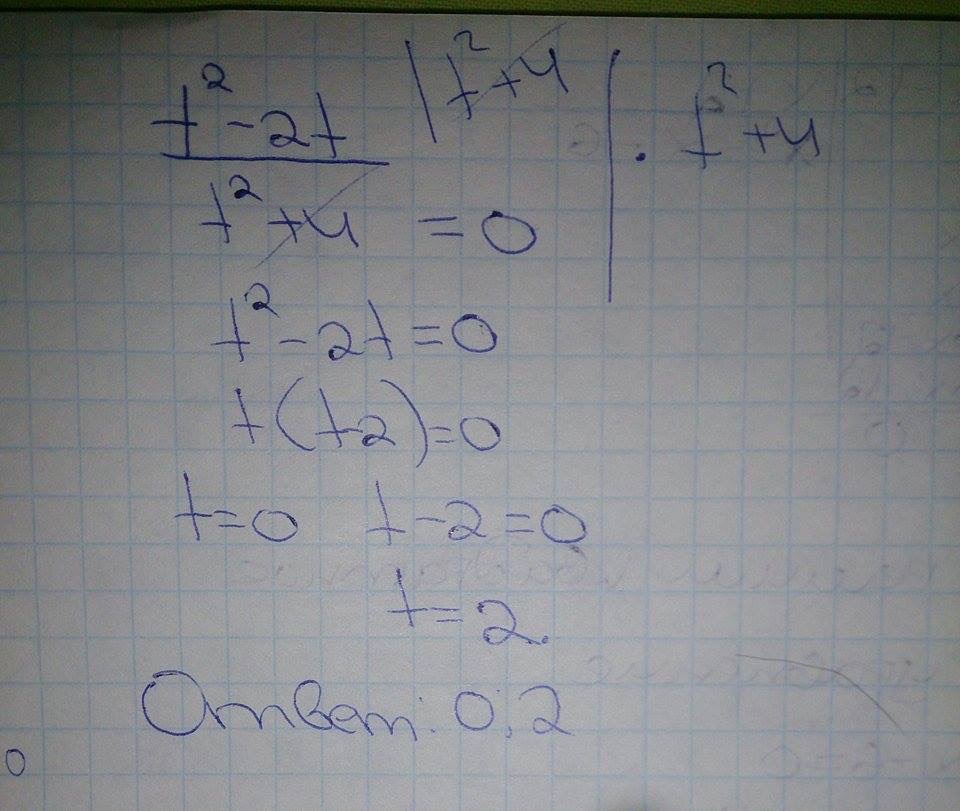 t² - 2t | t² + 4 | · t² + 4
t² + 4 = 0
t² - 2t = 0
t(t-2) = 0
t = 0 t - 2 = 0
t = 2.
Ответ: 0; 2
0